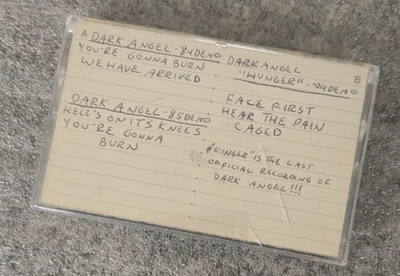 A DARK ANGEL-84DEMO
YOU'RE GONNA BURN
WE HAVE ARRIVED
DARK ANGEL-85DEMO
HELL'S ON ITS KNEES
YOU'RE GONNA
BURN
B
DARK ANGEL
"HUNGER"-94DEMO
FACE FIRST
HEAR THE PAIN
CAGED
"HUNGER" IS THE LAST
OFFICIAL RECORDING OF
DARK ANGEL!!!